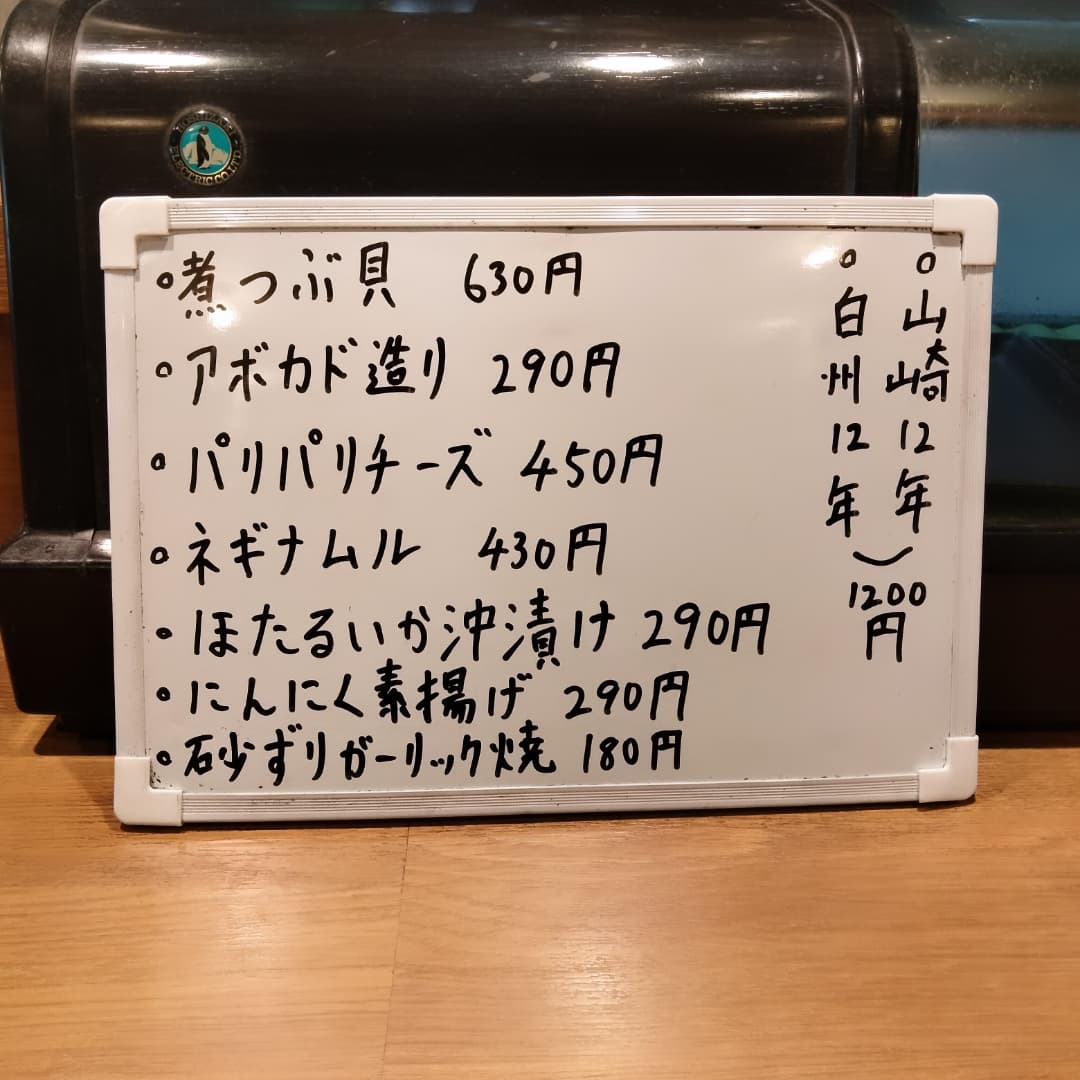 HOSHIZAKI
ELECTRIC CO.,LTD.
煮つぶ貝 630円
アボカド造り 290円
パリパリチーズ 450円
ネギナムル 430円
ほたるいか沖漬け 290円
にんにく素揚げ 290円
砂ずりガーリック焼 180円
山崎12年
白州12年
1200円